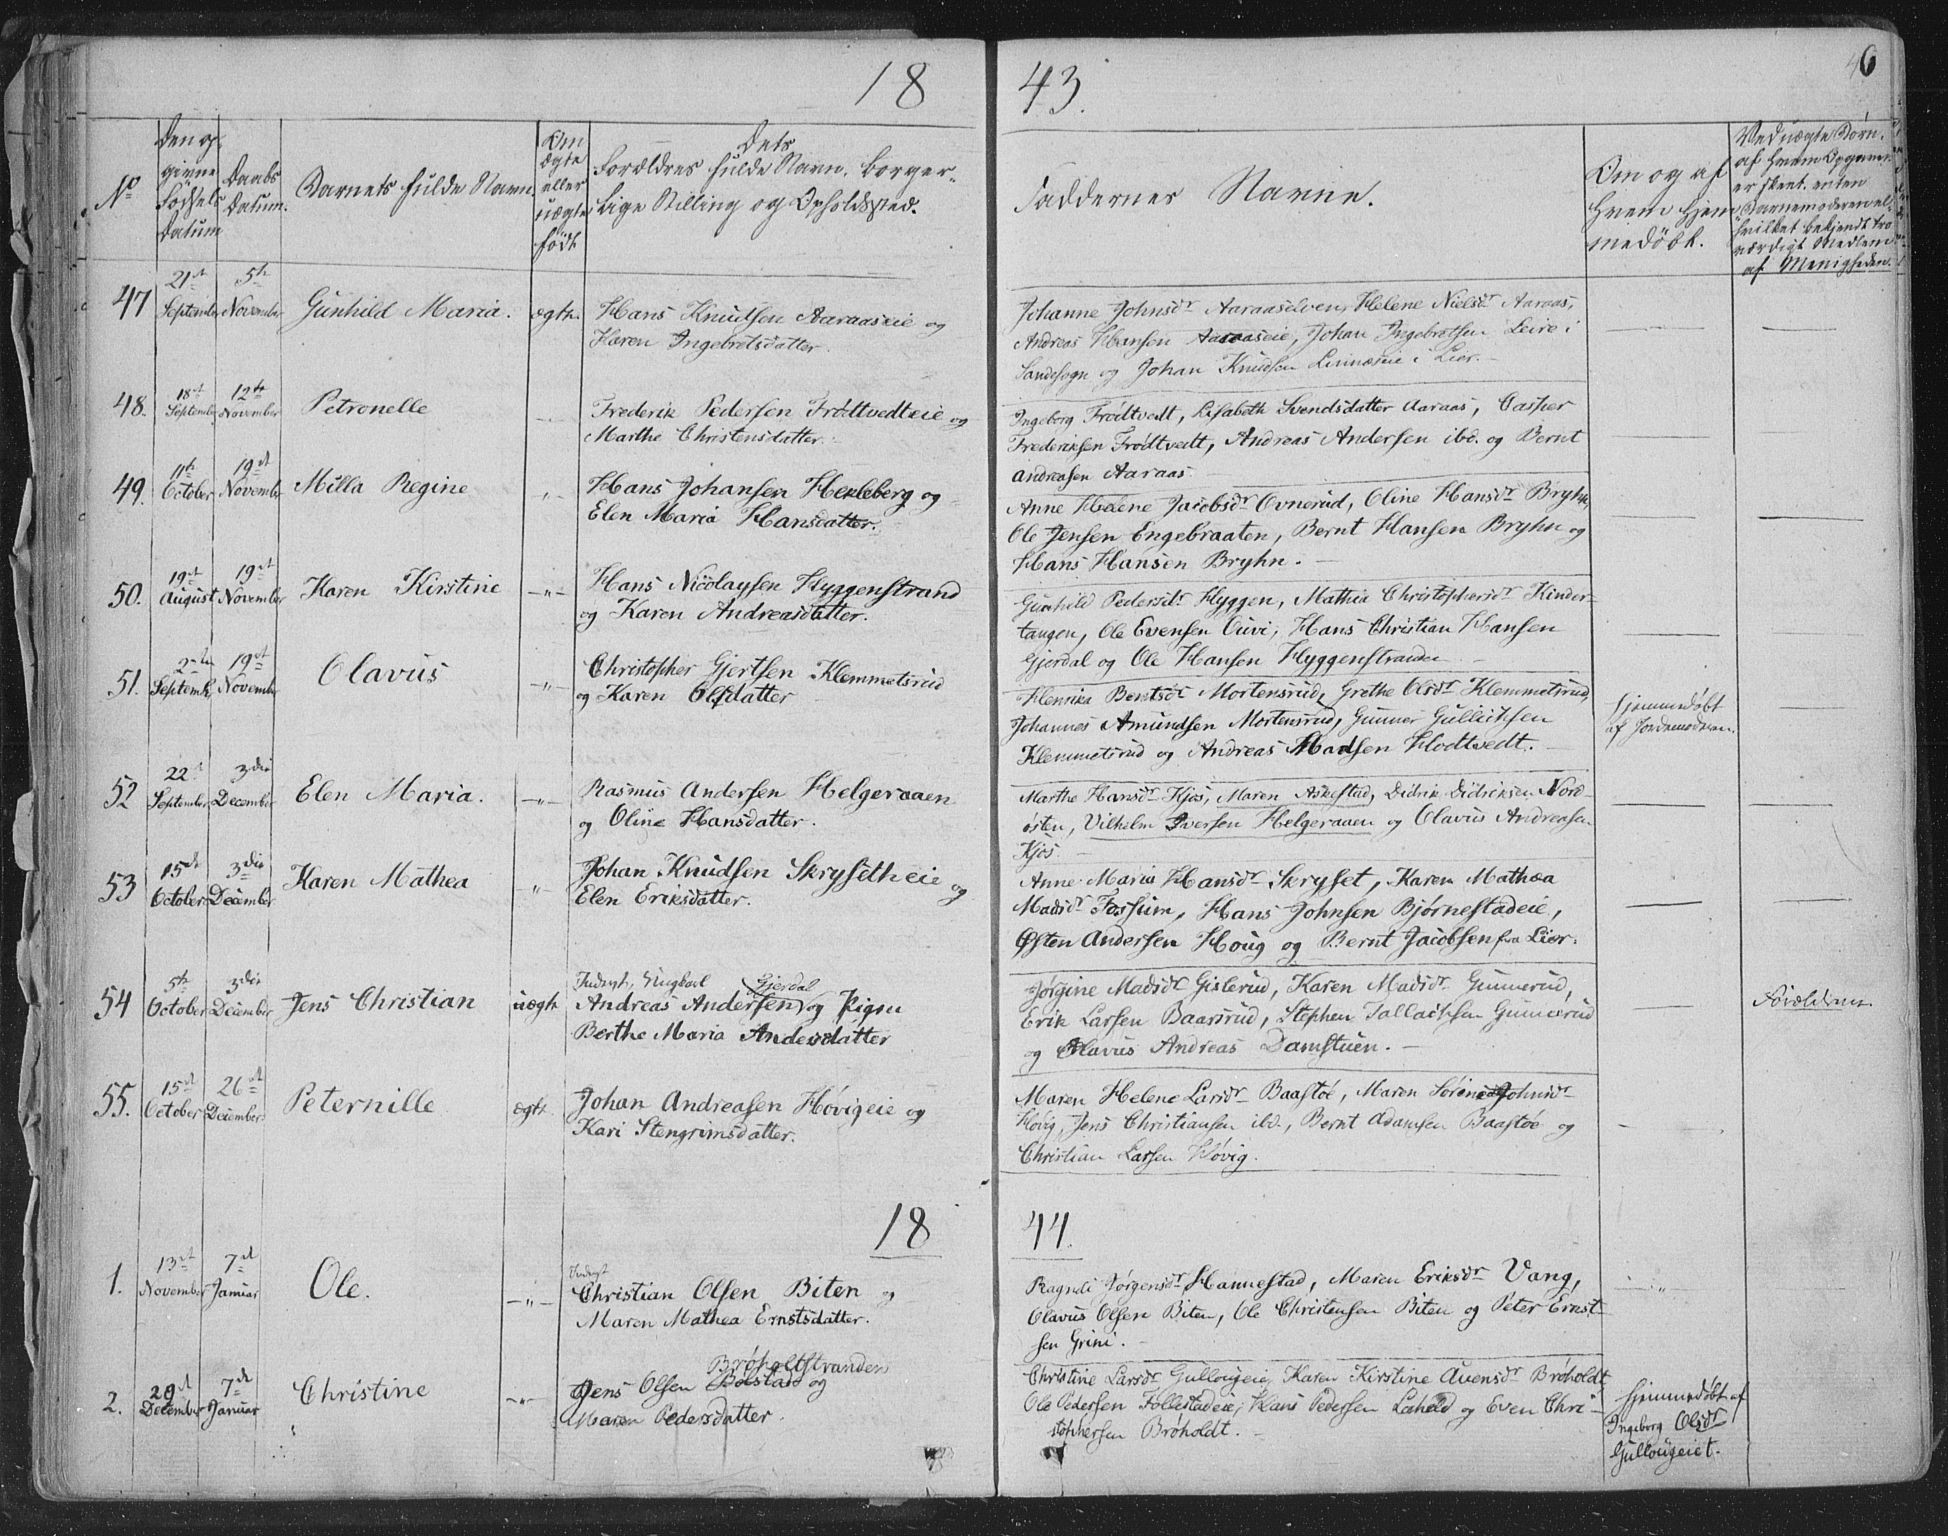 18 43.
6
No
Den op-
givne
Fødsels
Datum
Daabs
Datum.
Barnets fulde Navn
Om
ægte
eller
uægte
født
Dets
Forældres fulde Navn, borger-
lige Stilling og Opholdssted.
Faddernes Navne.
Om og af
hvem hjem
medøbt.
Ved uægte Børn.
af hvem Opgaven
er skeet, enten
Barnemoderen el.
hvilket bekjendt tro
værdigt Medlem
af Menigheden.
47 21de September 5te November Gunhild Maria. ægte. Hans Knudsen Aaraaseie og
Karen Ingebretsdatter.
Johanne Johnsdr Aaraaselven, Helene Nielsdr Aaraas,
Andreas Hansen Aaraaseie, Johan Ingebretsen Leire i
Sandesogn og Johan Knudsen Linnæseie i Lier.
48. 18de September 12te November Petronelle Frederik Pedersen Frødtvedteie og
Marthe Christensdatter.
Ingeborg Frødtvedt, Lisabeth Svendsdatter Aaraas, Casper
Frederiksen Frødtvedt, Andreas Andersen ibd. og Bernt
Andreasen Aaraas
49. 11te October 19de November Milla Regine -"- Hans Johansen Hekleberg og
Elen Maria Hansdatter.
Anne Helene Jacobsdr Ovnerud, Oline Hansdr Bryhn,
Ole Jensen Engebraaten, Bernt Hansen Bryhn og
Hans Hansen Bryhn.
50. 19de August 19de November Karen Kirstine -"- Hans Nicolaysen Hyggenstrand
og Karen Andreasdatter.
Gunhild Pedersdr Hyggen, Mathia Christophersdr Kinder-
tangen, Ole Evensen Auvi, Hans Christian Hansen
Gjerdal og Ole Hansen Hyggenstranden
51. 2den Septemb. 19de November Olavus -"- Christopher Gjertsen Klemmetsrud
og Karen Olsdatter
Henrika Bentsdr Mortensrud, Grethe Olsdr Klemmetsrud,
Johannes Amundsen Mortensrud, Gunner Gullichsen
Klemmetsrud og Andreas Madsen Hodtvedt.
hjemmedøbt
af Jordemoderen.
52 22de September 3die December Elen Maria. -"- Rasmus Andersen Helgeraaen
og Oline Hansdatter.
Marthe Hansdr Kjøs, Maren Askestad, Didrik Didriksen Nord-
østen, Vilhelm Iversen Helgeraaen og Olavus Andreasen
Kjøs.
53 15de October 3die December Karen Mathea -"- Johan Knudsen Skryseth eie og
Elen Eriksdatter.
Anne Maria Hansdr Skryset, Karen Mathea
Madsdr Fossum, Hans Johnsen Bjørnestadeie,
Østen Andersen Houg og Bernt Jacobsen fra Lier.
54 5te October 3die December Jens Christian uægte Inderst, Ungkarl Gjerdal
Andreas Andersen og Pigen
Berthe Maria Andersdatter
Jørgine Madsdr Gislerud, Karen Madsdr Gunnerud,
Erik Larsen Baarsrud, Stephen Tallachsen Gunnerud
og Olavus Andreas Damstuen.
Forældrene.
55. 15de October 26de December Peternille ægte. Johan Andreasen Høvigeie og
Kari Stengrimsdatter.
Maren Helene Larsdr Baastøe, Maren Sørine Johnsdr
Høvig, Jens Christiansen ibd., Bernt Adamsen Baastøe og
Christian Larsen Høvig.
18 44.
1. 13de November 7de Januar Ole. -"- Inderst
Christian Olsen Biten og
Maren Mathea Ernstsdatter.
Ragndi Jørgensdr Hannestad, Maren Eriksdr Vang,
Olavus Olsen Biten, Ole Christensen Biten og Peter Ernst-
sen Grini.
2. 29de December 7de Januar Christine -"- Brøholtstranden
Jens Olsen Bølstad og
Maren Pedersdatter.
Christine Larsdr Gullougeie, Karen Kirstine Auensdr Brøholdt,
Ole Pedersen Follestadeie, Hans Pedersen Lahell og Even Chri-
stophersen Brøholdt.
hjemmedøbt af
Ingeborg Olsdr
Gullougeiet.